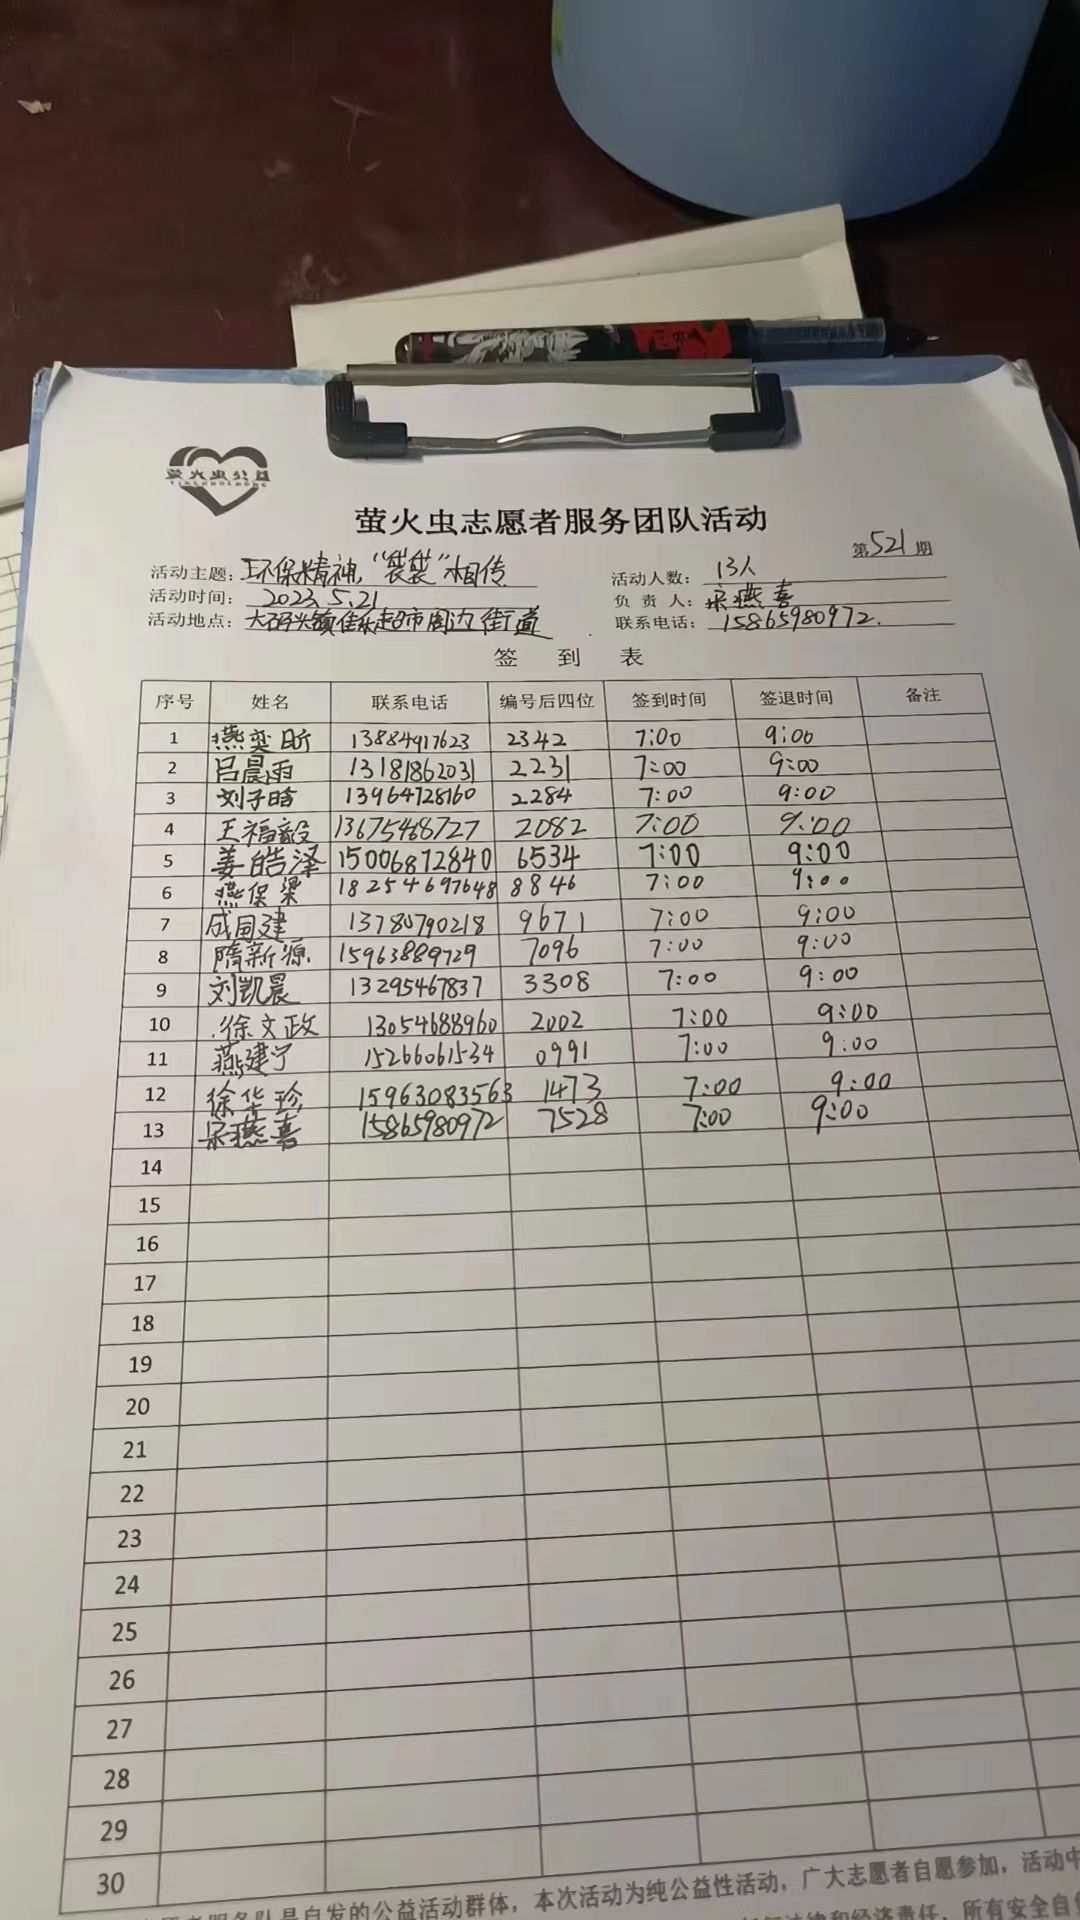 萤火虫公益
萤火虫志愿者服务团队活动
第521期
活动主题：环保精神，“袋袋”相传 活动人数：13人
活动时间：2023.5.21 负责人：宋燕喜
活动地点：大码头镇佳乐超市周边街道 联系电话：15865980972.
签到表
序号 姓名 联系电话 编号后四位 签到时间 签退时间 备注
1 燕奕昕 13884917623 2342 7:00 9:00
2 吕晨雨 13181862031 2231 7:00 9:00
3 刘子晗 13964728160 2284 7:00 9:00
4 王福毅 13675468727 2082 7:00 9:00
5 姜皓泽 15006872840 6534 7:00 9:00
6 燕保梁 18254697648 8846 7:00 9:00
7 成国建 13780790218 9671 7:00 9:00
8 隋新源 15963889729 7096 7:00 9:00
9 刘凯晨 13295467837 3308 7:00 9:00
10 徐文政 13054688960 2002 7:00 9:00
11 燕建宁 15266061534 0991 7:00 9:00
12 徐华珍 15963083563 1473 7:00 9:00
13 宋燕喜 15865980972 7528 7:00 9:00
14
15
16
17
18
19
20
21
22
23
24
25
26
27
28
29
30
愿者服务队是自发的公益活动群体，本次活动为纯公益性活动，广大志愿者自愿参加，活动中
法律和经济责任，所有安全自